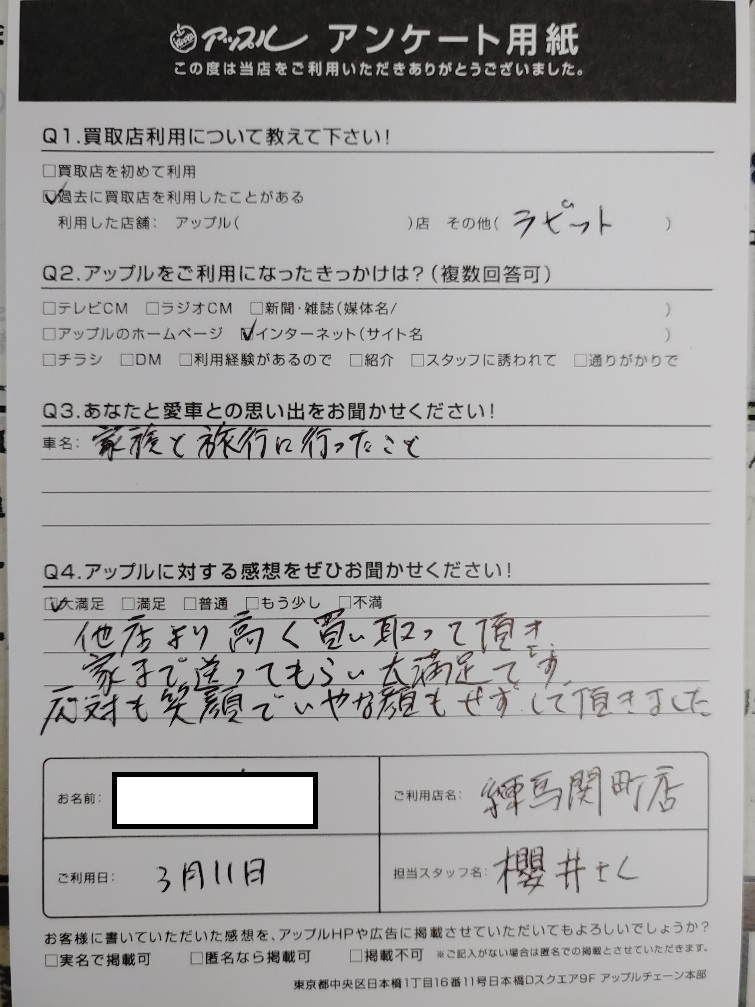 アップル アンケート用紙
この度は当店をご利用いただきありがとうございました。
Q1.買取店利用について教えて下さい!
□買取店を初めて利用
☑過去に買取店を利用したことがある
利用した店舗: アップル( )店 その他( ラビット )
Q2.アップルをご利用になったきっかけは?(複数回答可)
□テレビCM □ラジオCM □新聞・雑誌(媒体名/ )
□アップルのホームページ ☑インターネット(サイト名 )
□チラシ □DM □利用経験があるので □紹介 □スタッフに誘われて □通りがかりで
Q3.あなたと愛車との思い出をお聞かせください!
車名: 家族と旅行に行ったこと
Q4.アップルに対する感想をぜひお聞かせください!
☑大満足 □満足 □普通 □もう少し □不満
他店より高く買い取って頂き
家まで送ってもらい大満足です。
応対も笑顔でいやな顔もせずして頂きました
お名前:
ご利用店名: 練馬関町店
ご利用日: 3月11日
担当スタッフ名: 櫻井さん
お客様に書いていただいた感想を、アップルHPや広告に掲載させていただいてもよろしいでしょうか?
□実名で掲載可 □匿名なら掲載可 □掲載不可 ※ご記入がない場合は匿名での掲載とさせていただきます。
東京都中央区日本橋1丁目16番11号日本橋Dスクエア9F アップルチェーン本部